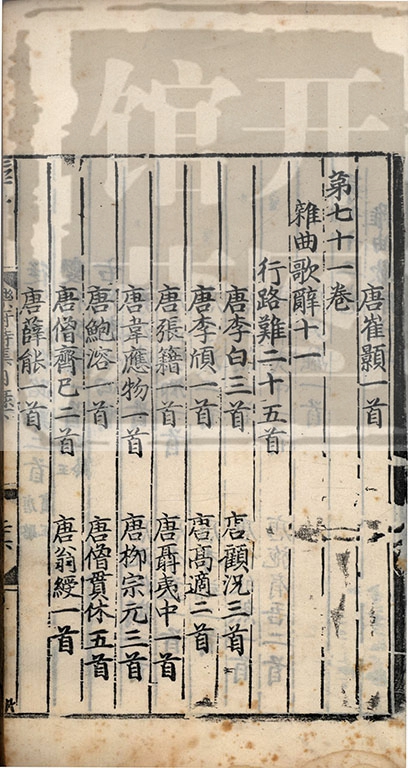 唐崔顥一首
第七十一卷
雜曲歌辭十一
行路難二十五首
唐李白三首 唐顧况三首
唐李頎一首 唐高適二首
唐張籍一首 唐聶夷中一首
唐韋應物一首 唐柳宗元三首
唐鮑溶一首 唐僧貫休五首
唐僧齊已二首 唐翁綬一首
唐薛能一首